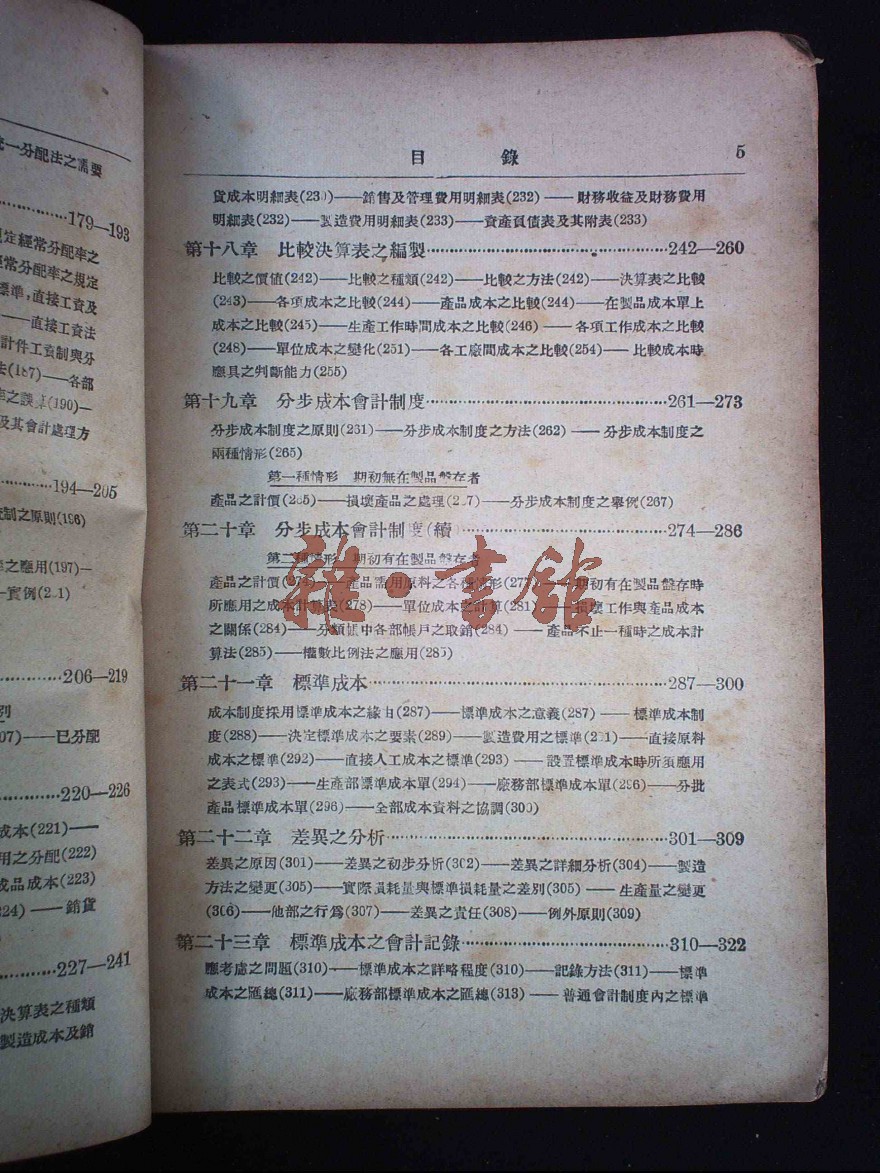 統一分配法之需要
179—193
規定經常分配率之
經常分配率之規定
標準,直接工資及
——直接工資法
計件工資制與分
法(187)——各部
率之誤算(190)—
及其會計處理方
194—205
統制之原則(196)
率之應用(197)—
—實例(201)
206—219
別
07)——已分配
220—226
成本(221)——
用之分配(222)
成品成本(223)
224)——銷貨
227—241
決算表之種類
製造成本及銷
目錄 5
貨成本明細表(230)——銷售及管理費用明細表(232)——財務收益及財務費用
明細表(232)——製造費用明細表(233)——資產負債表及其附表(233)
第十八章 比較決算表之編製……242—260
比較之價值(242)——比較之種類(242)——比較之方法(242)——決算表之比較
(243)——各項成本之比較(244)——產品成本之比較(244)——在製品成本單上
成本之比較(245)——生產工作時間成本之比較(246)——各項工作成本之比較
(248)——單位成本之變化(251)——各工廠間成本之比較(254)——比較成本時
應具之判斷能力(255)
第十九章 分步成本會計制度……261—273
分步成本制度之原則(261)——分步成本制度之方法(262)——分步成本制度之
兩種情形(265)
第一種情形 期初無在製品盤存者
產品之計價(265)——損壞產品之處理(267)——分步成本制度之舉例(267)
第二十章 分步成本會計制度(續)……274—286
第二種情形 期初有在製品盤存者
產品之計價——產品需用原料之各種情形——期初有在製品盤存時
所應用之成本計算表(278)——單位成本之計算(281)——損壞工作與產品成本
之關係(284)——分類帳中各部帳戶之取銷(284)——產品不止一種時之成本計
算法(285)——權數比例法之應用(285)
第二十一章 標準成本……287—300
成本制度採用標準成本之緣由(287)——標準成本之意義(287)——標準成本制
度(288)——決定標準成本之要素(289)——製造費用之標準(291)——直接原料
成本之標準(292)——直接人工成本之標準(293)——設置標準成本時所須應用
之表式(293)——生產部標準成本單(294)——廠務部標準成本單(296)——分批
產品標準成本單(296)——全部成本資料之協調(300)
第二十二章 差異之分析……301—309
差異之原因(301)——差異之初步分析(302)——差異之詳細分析(304)——製造
方法之變更(305)——實際損耗量與標準損耗量之差別(305)——生產量之變更
(306)——他部之行爲(307)——差異之責任(308)——例外原則(309)
第二十三章 標準成本之會計記錄……310—322
應考慮之問題(310)——標準成本之詳略程度(310)——記錄方法(311)——標準
成本之匯總(311)——廠務部標準成本之匯總(313)——普通會計制度內之標準
雜·書館